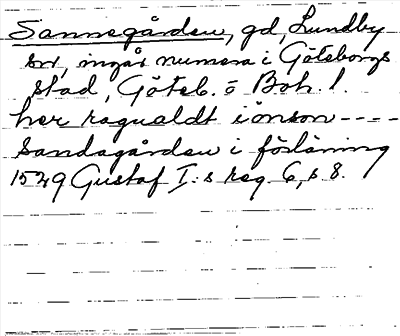 Sannegården, gd, Lundby
sn, ingår numera i Göteborgs
stad, Göteb. o Boh. l.
her ragualdt iönson ----
Sandagården i förläning
1529 Gustaf I:s reg 6, s 8.